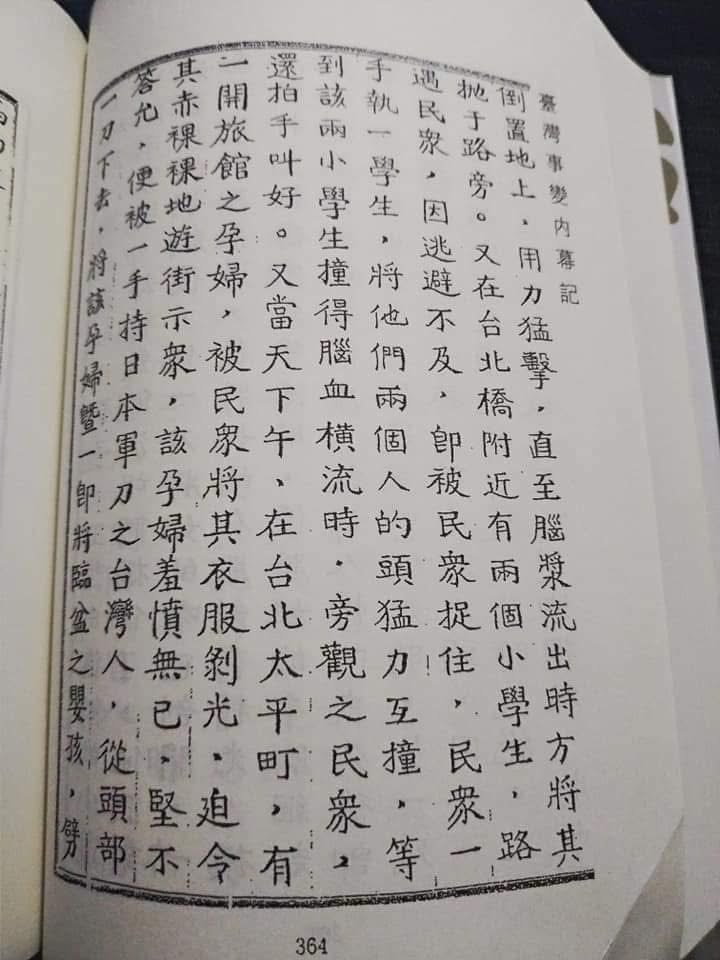 臺灣事變內幕記
倒置地上，用力猛擊，直至腦漿流出時方將其
抛于路旁。又在台北橋附近有兩個小學生，路
遇民衆，因逃避不及，即被民衆捉住，民衆一
手執一學生，將他們兩個人的頭猛力互撞，等
到該兩小學生撞得腦血橫流時．旁觀之民衆，
還拍手叫好。又當天下午、在台北太平町，有
一開旅館之孕婦，被民衆將其衣服剝光．迫令
其赤裸裸地遊街示衆，該孕婦羞憤無已．堅不
答允，便被一手持日本軍刀之台灣人，從頭部
一刀下去，將該孕婦暨一即將臨盆之嬰孩，劈
364